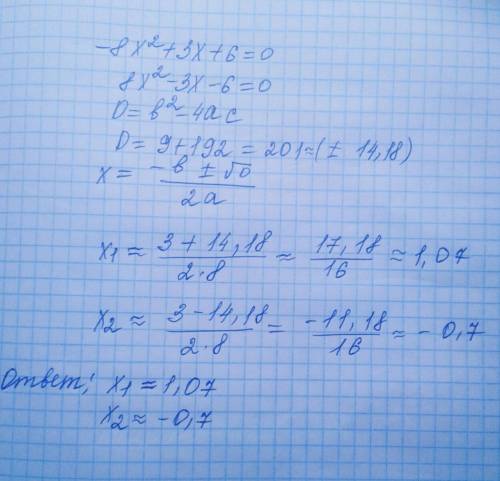 -8x²+3x+6=0
8x²-3x-6=0
D=в²-4ac
D=9+192=201≈(±14,18)
x= (-в±√D)/(2a)
x₁≈ (3+14,18)/(2·8) ≈ 17,18/16 ≈1,07
x₂≈ (3-14,18)/(2·8) = -11,18/16 ≈-0,7
Ответ; x₁≈1,07
x₂≈-0,7